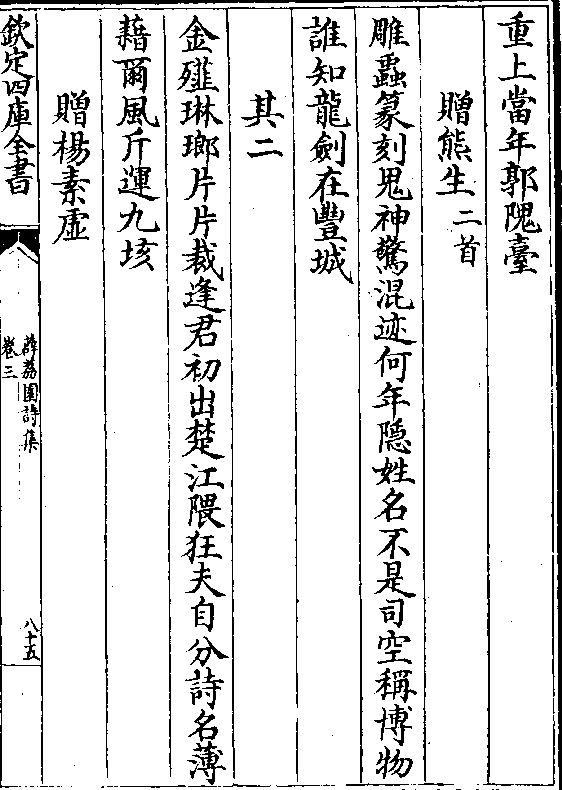 重上當年郭隗臺
贈熊生二首
雕蟲篆刻鬼神驚混迹何年隠姓名不是司空稱博物
誰知龍劍在豐城
其二
金薤琳瑯片片裁逢君初出楚江隈狂夫自分詩名薄
藉爾風斤運九垓
贈楊素虛
欽定四庫全書
薜荔園詩集
卷三
八十五